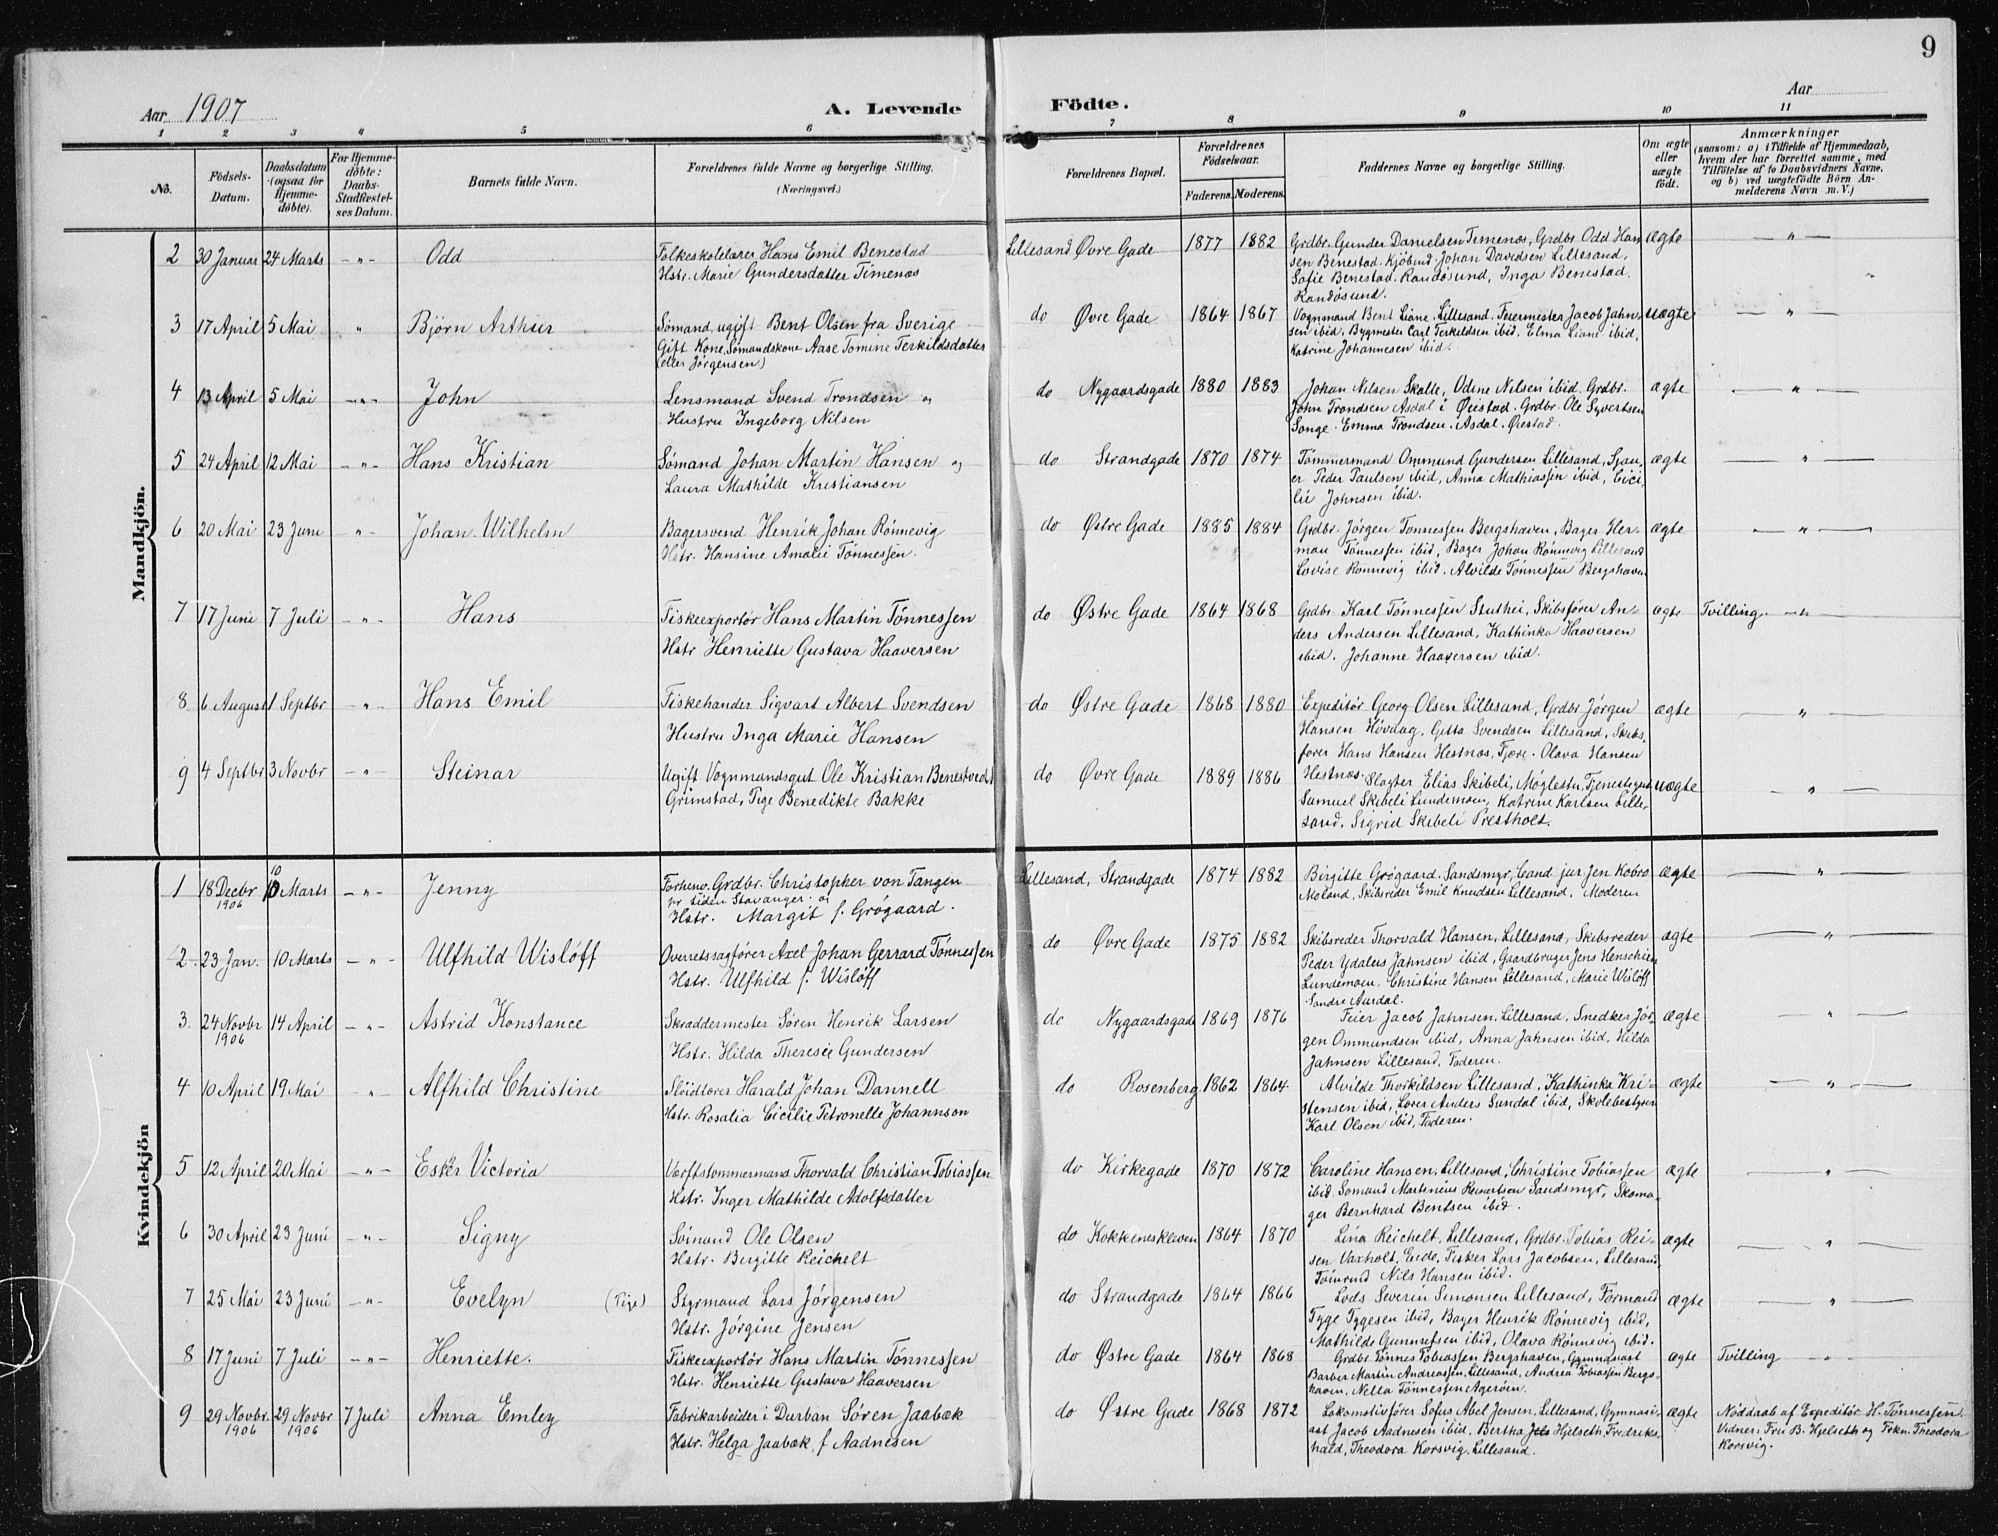 9
Aar 1907
A. Levende Födte.
Aar
1 2 3 4 5 6 7 8 9 10 11
No.
Födsels-Datum.
Daabsdatum (ogsaa for Hjemme-döbte).
For Hjemme-döbte: Daabs-Stadfæstel-ses Datum.
Barnets fulde Navn.
Forældrenes fulde Navne og borgerlige Stilling.
(Næringsvei.)
Forældrenes Bopæl.
Forældrenes Födselsaar.
Faderens. Moderens.
Faddernes Navne og borgerlige Stilling.
Om ægte eller uægte födt.
Anmærkninger
(saasom: a) i Tilfælde af Hjemmedaab,
hvem der har forrettet samme, med
Tilföielse af to Daabsvidners Navne.
og b) ved uægtefödte Börn An-
melderens Navn m. V.)
Mandkjön.
2 30 Januar 24 Marts -"- Odd
Folkeskolelærer Hans Emil Benestad
Hstr. Marie Gundersdatter Timenes
Lillesand Øvre Gade 1877 1882
Grdbr. Gunder Danielsen Timenes, Grdbr Odd Han
sen Benestad. Kjöbmd. Johan Davidsen Lillesand,
Sofie Benestad. Randösund, Inga Benestad.
Randösund.
ægte — " —
3 17 April 5 Mai " Björn Arthur
Sömand, ugift Bent Olsen fra Sverige
Gift Kone, Sömandskone Aase Tomine Terkildsdatter
(eller Jörgensen)
do Øvre Gade 1864 1867
Vognmand Bent Liane. Lillesand. Feiermester Jacob Jahn-
sen ibid, Bygmester Carl Terkildsen ibid. Elma Liane ibid,
Katrine Johannesen ibid.
uægte — " —
4 13 April 5 Mai -"- John
Lensmand Svend Trondsen og
Hustru Ingeborg Nilsen
do Nygaardsgade 1880 1883
Johan Nilsen Skolle, Odine Nilsen ibid, Grdbr.
John Trondsen Asdal i Øiestad, Grdbr. Ole Syvertsen
Songe. Emma Trondsen. Asdal. Øiestad.
ægte — " —
5 24 April 12 Mai -"- Hans Kristian
Sömand Johan Martin Hansen og
Laura Mathilde Kristiansen
do Strandgade 1870 1874
Tömmermand Ommund Gundersen Lillesand, Sjau-
er Peder Paulsen ibid, Anna Mathiassen ibid, Cici-
lie Johnsen ibid.
ægte — " —
6 20 Mai 23 Juni -"- Johan Wilhelm
Bagersvend Henrik Johan Rönnevig
Hstr. Hansine Amalie Tönnessen.
do Østre Gade 1885 1884
Grdbr. Jörgen Tönnessen Bergshaven, Bager Her-
man Tönnessen ibid, Bager Johan Rönnevig Lillesand
Lovise Rönnevig ibid. Alvilde Tönnessen Bergshaven
ægte — " —
7 17 Juni 7 Juli -"- Hans
Fiskeexportör Hans Martin Tönnessen
Hstr Henriette Gustava Haaversen
do Østre Gade 1864 1868
Grdbr Karl Tönnessen Stuthei, Skibsförer An-
ders Andersen Lillesand, Kathinka Haaversen
ibid. Johanne Haaversen ibid.
ægte Tvilling. -"-
8 6 August 1 Septbr -"- Hans Emil
Fiskehander Sigvart Albert Svendsen
Hustru Inga Marie Hansen
do Østre Gade 1868 1880
Expeditör Georg Olsen Lillesand, Grdbr Jörgen
Hansen Hövdag, Gitta Svendsen Lillesand, Skibs-
förer Hans Hansen Hestnes, Fjære. Olava Hansen
Hestnæs.
ægte — " —
9 4 Septbr 3 Novbr -"- Steinar
Ugift Vogmandsgut Ole Kristian Benestvedt
Grimstad, Pige Benedikte Bakke
do Øvre Gade 1889 1886
Slagter Elias Skibeli, Möglestu, Tjenestegut
Samuel Skibeli Lundemoen, Katrine Karlsen Lille-
sand, Sigrid Skibeli Prestholt.
uægte — " —
Kvindekjön
1 18 Decbr 1906 10 10 Marts -"- Jenny
Forhenv. Grdbr. Christopher von Tangen
pr tiden Stavanger. og
Hstr. Margit f. Grögaard.
Lillesand, Strandgade 1874 1882
Birgitte Grögaard. Sandsmyr, Cand jur Jen Kobro
Moland, Skibsreder Emil Knudsen Lillesand. Moderen
ægte — " —
2. 23 Jan. 10 Marts -"- Ulfhild Wislöff
Overretssagförer Axel Johan Gerrard Tönnessen
Hstr. Ulfhild f. Wislöff
do Øvre Gade 1875 1882
Skibsreder Thorvald Hansen, Lillesand, Skibsreder
Peder Ydalus Jahnsen ibid, Gaardbruger Jens Henschien
Lundemoen, Christine Hansen Lillesand, Marie Wislöff
Søndre Aurdal.
ægte — " —
3. 24 Novbr 1906 14 April -"- Astrid Konstance
Skræddermester Sören Henrik Larsen
Hstr. Hilda Theresie Gundersen
do Nygaardsgade 1869 1876
Feier Jacob Jahnsen. Lillesand, Snedker Jör-
gen Ommundsen ibid, Anna Jahnsen ibid, Hilda
Jahnsen Lillesand, Faderen.
ægte — " —
4 10 April 19 Mai -"- Alfhild Christine
Skidtlorer Harald Johan Dannell
Hstr. Rosalia Cicilie Petronelle Johannson
do Rosenberg 1862 1864
Alvilde Thorkildsen Lillesand, Kathinka Kri-
stensen ibid, Lærer Anders Sundal ibid, Skolebestyrer
Karl Olsen ibid, Faderen.
ægte — " —
5 12 April 20 Mai -"- Ester Victoria
Værftstömmermand Thorvald Christian Tobiassen
Hstr. Inger Mathilde Adolfsdatter
do Kirkegade 1870 1872
Caroline Hansen, Lillesand, Christine Tobiassen
ibid. Sömand Martinius Reinertsen Sandsmyr, Skoma-
ger Bernhard Bentsen ibid.
ægte — " —
6 30 April 23 Juni -"- Signy
Sömand Ole Olsen
Hstr. Birgitte Reichelt
do Kokkeneskleven 1864 1870
Lina Reichelt, Lillesand, Grdbr. Tobias Rei-
sen Vaxholt, Eide, Fisker Lars Jacobsen, Lillesand
Tömrmd Nils Hansen ibid.
ægte — " —
7 25 Mai 23 Juni -"- Evelyn (Pige)
Styrmand Lars Jörgensen
Hstr. Jörgine Jensen
do Strandgade 1864 1866
Lods Severin Simonsen Lillesand, Formand
Tyge Tygesen ibid, Bager Henrik Rönnevig ibid,
Mathilde Gunnufsen ibid, Olava Rönnevig ibid.
ægte — " —
8 17 Juni 7 Juli -"- Henriette.
Fiskeexportör Hans Martin Tönnessen
Hstr. Henriette Gustava Haaversen
do Østre Gade 1864 1868
Grdbr. Tönnes Tobiassen Bergshaven, Gymnasiast
Barber Martin Andreassen, Lillesand, Andrea Tobiassen Bergs-
haven, Nella Tönnessen Ageröen.
ægte Tvilling -"-
9 29 Novbr. 1906 29 Novbr 1906 7 Juli Anna Emley
Fabrikarbeider i Durban Sören Jaabæk
Hstr. Helga Jaabæk, f Aadnesen
do Østre Gade 1868 1872
Lokomotivförer Sofus Abel Jensen. Lillesand, Gymnasi-
ast Jacob Aadnesen ibid, Bertha Hjelseth, Fredriks-
hald, Theodora Korsvig. Lillesand.
ægte Nöddaab af Expeditör H. Tönnessen.
Vidner: Fru B. Hjelseth og Frkn. Theodora
Korsvig.